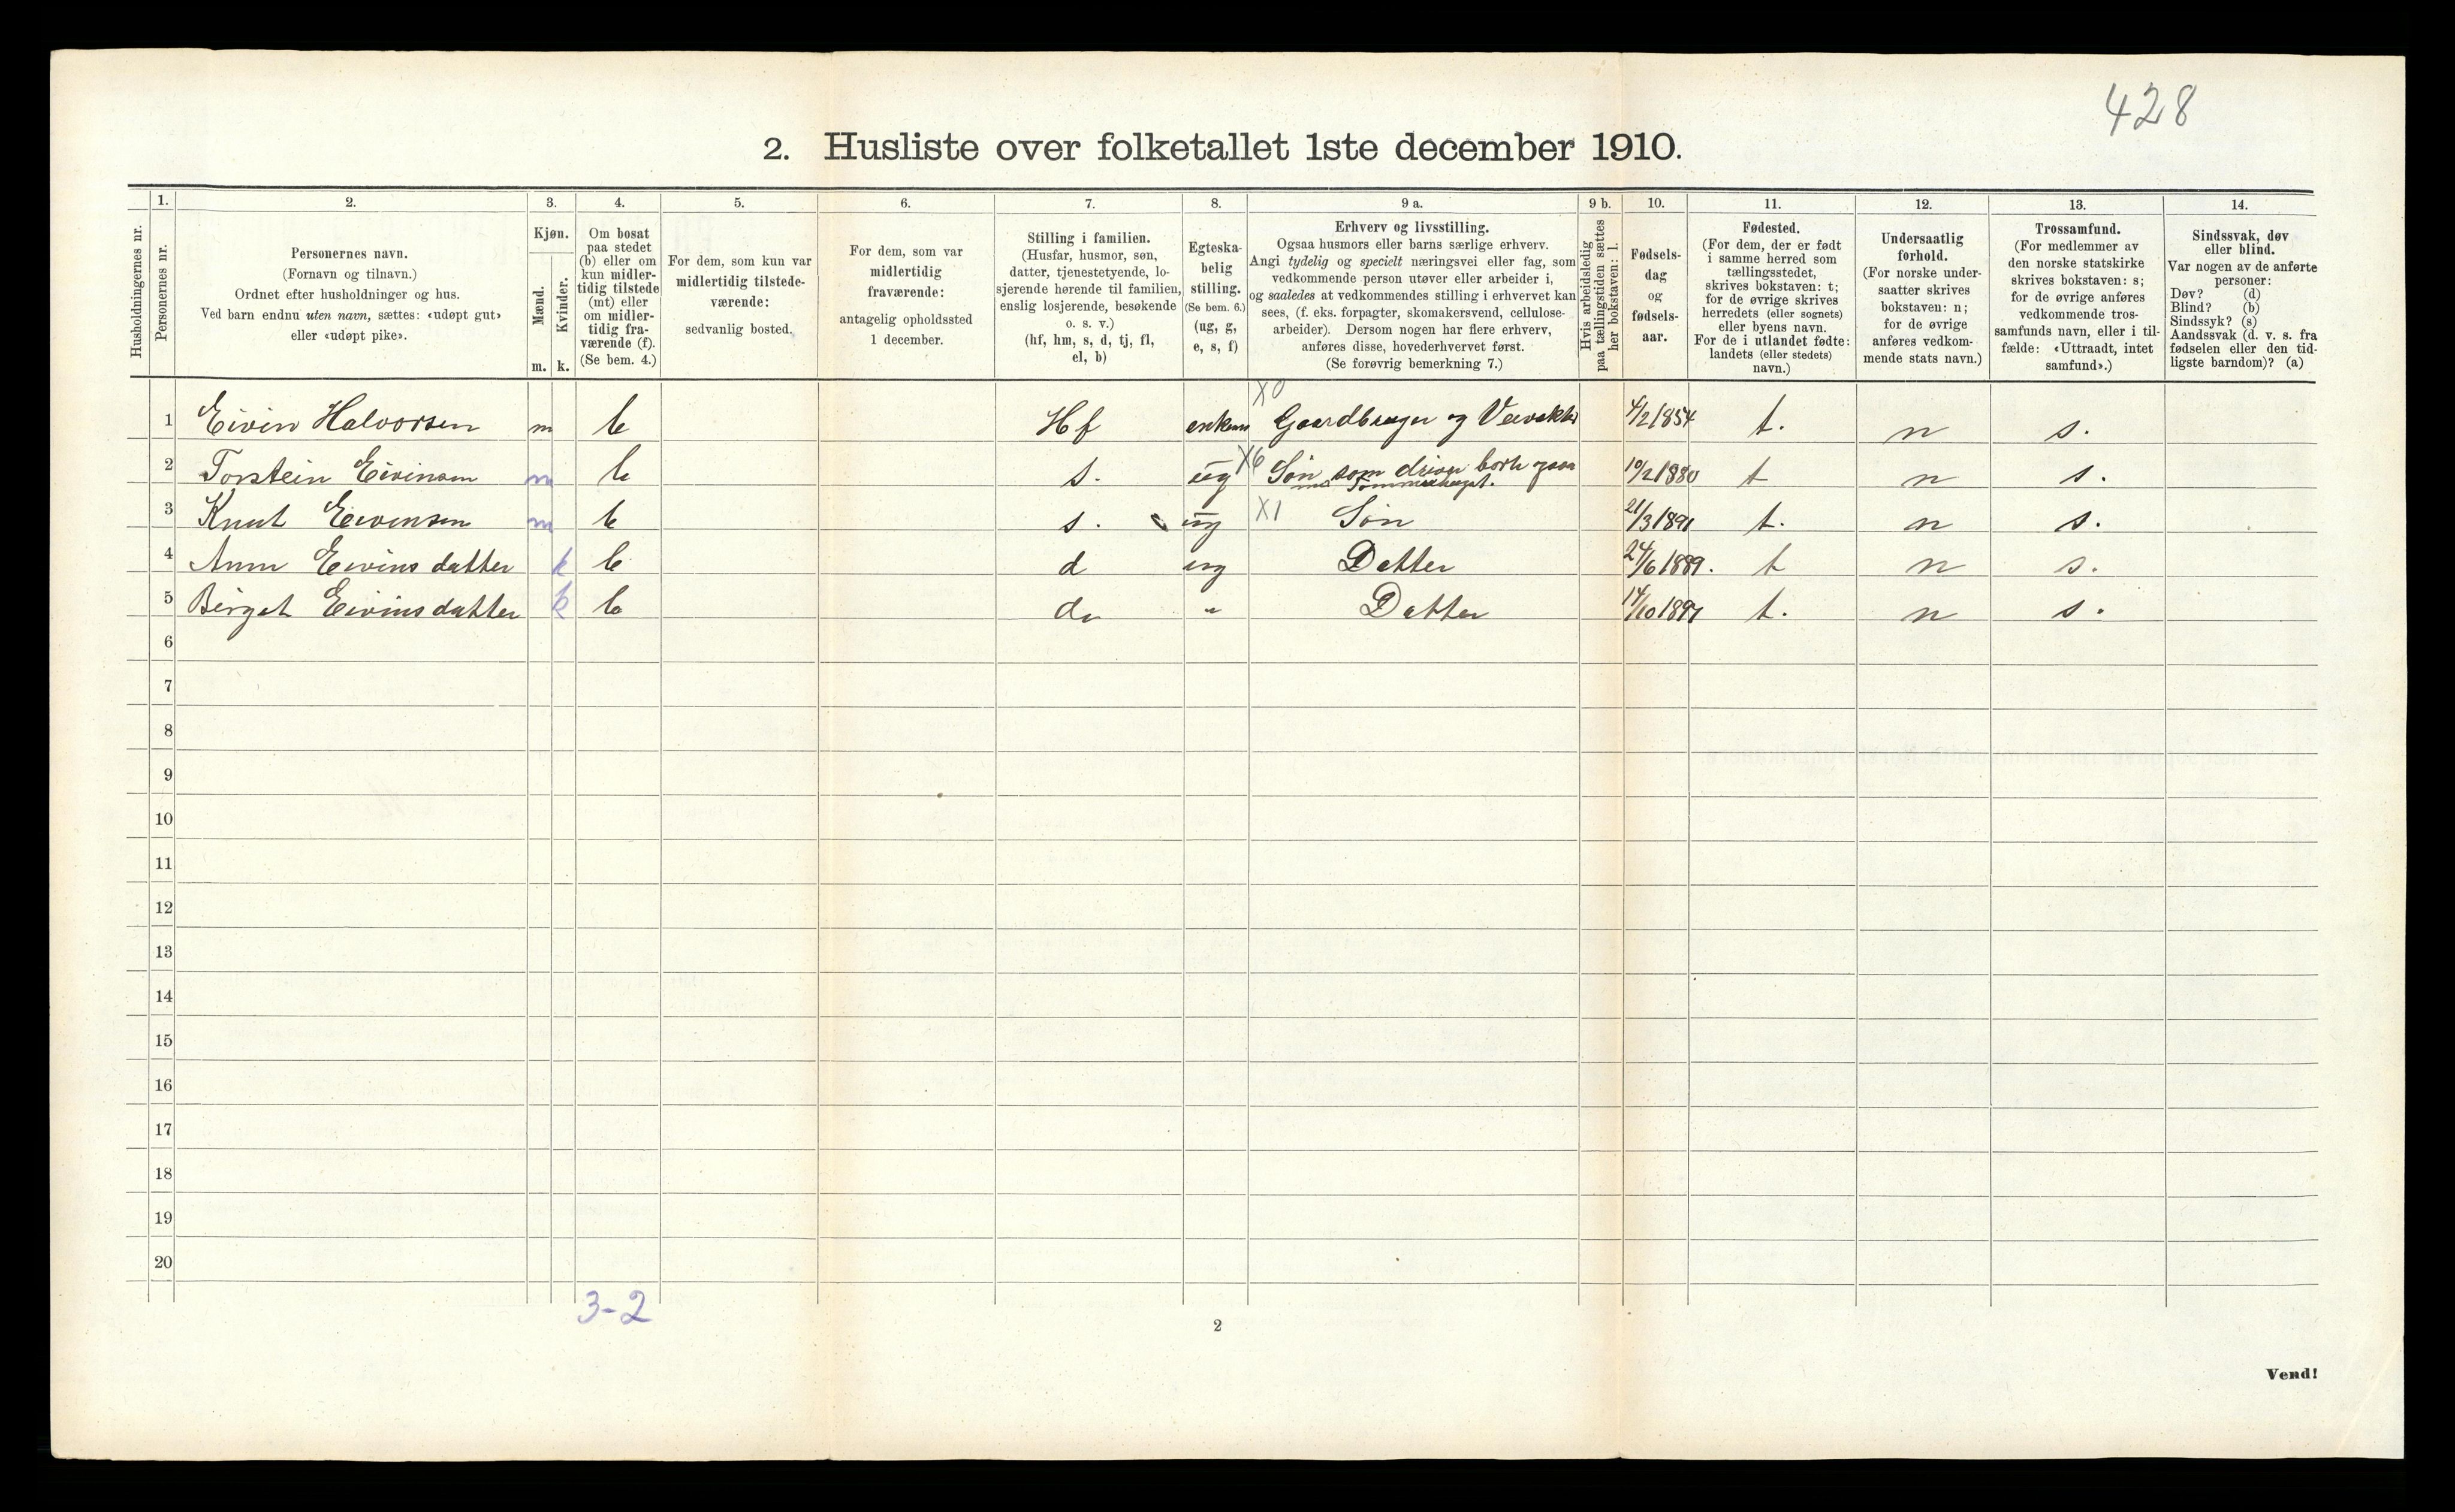 428
2. Husliste over folketallet 1ste december 1910.
Husholdningernes nr.
1.
Personernes nr.
2.
Personernes navn.
(Fornavn og tilnavn.)
Ordnet efter husholdninger og hus.
Ved barn endnu uten navn, sættes: «udøpt gut»
eller «udøpt pike».
3.
Kjøn.
Mænd.
Kvinder.
m. k.
4.
Om bosat
paa stedet
(b) eller om
kun midler-
tidig tilstede
(mt) eller
om midler-
tidig fra-
værende (f).
(Se bem. 4.)
5.
For dem, som kun var
midlertidig tilstede-
værende:
sedvanlig bosted.
6.
For dem, som var
midlertidig
fraværende:
antagelig opholdssted
1 december.
7.
Stilling i familien.
(Husfar, husmor, søn,
datter, tjenestetyende, lo-
sjerende hørende til familien,
enslig losjerende, besøkende
o. s. v.)
(hf, hm, s, d, tj, fl,
el, b)
8.
Egteska-
belig
stilling.
(Se bem. 6.)
(ug, g,
e, s, f)
9 a.
Erhverv og livsstilling.
Ogsaa husmors eller barns særlige erhverv.
Angi tydelig og specielt næringsvei eller fag, som
vedkommende person utøver eller arbeider i,
og saaledes at vedkommendes stilling i erhvervet kan
sees, (f. eks. forpagter, skomakersvend, cellulose-
arbeider). Dersom nogen har flere erhverv,
anføres disse, hovederhvervet først.
(Se forøvrig bemerkning 7.)
9 b.
Hvis arbeidsledig
paa tællingstiden sættes
her bokstaven: l.
10.
Fødsels-
dag
og
fødsels-
aar.
11.
Fødested.
(For dem, der er født
i samme herred som
tællingsstedet,
skrives bokstaven: t;
for de øvrige skrives
herredets (eller sognets)
eller byens navn.
For de i utlandet fødte:
landets (eller stedets)
navn.)
12.
Undersaatlig
forhold.
(For norske under-
saatter skrives
bokstaven: n;
for de øvrige
anføres vedkom-
mende stats navn.)
13.
Trossamfund.
(For medlemmer av
den norske statskirke
skrives bokstaven: s;
for de øvrige anføres
vedkommende tros-
samfunds navn, eller i til-
fælde: «Uttraadt, intet
samfund».)
14.
Sindssvak, døv
eller blind.
Var nogen av de anførte
personer:
Døv? (d)
Blind? (b)
Sindssyk? (s)
Aandssvak (d. v. s. fra
fødselen eller den tid-
ligste barndom)? (a)
X0
1 Eivin Halvorsen m b Hf enkem Gaardbruger og 4/2 1854 t. n s.
2 Torstein Eivinsen m b s. ug X6 Søn som driver 10/2 1880 t n s.
3 Knut Eivensen m b s. ug X1 Søn 21/3 1891 t. n s.
4 Anne Eivins datter k b d ug Datter 24/6 1889. t n s.
5 Birget Eivins datter k b do " Datter 14/10 1897 t. n s.
6
7
8
9
10
11
12
13
14
15
16
17
18
19
20
3-2
2
Vend!